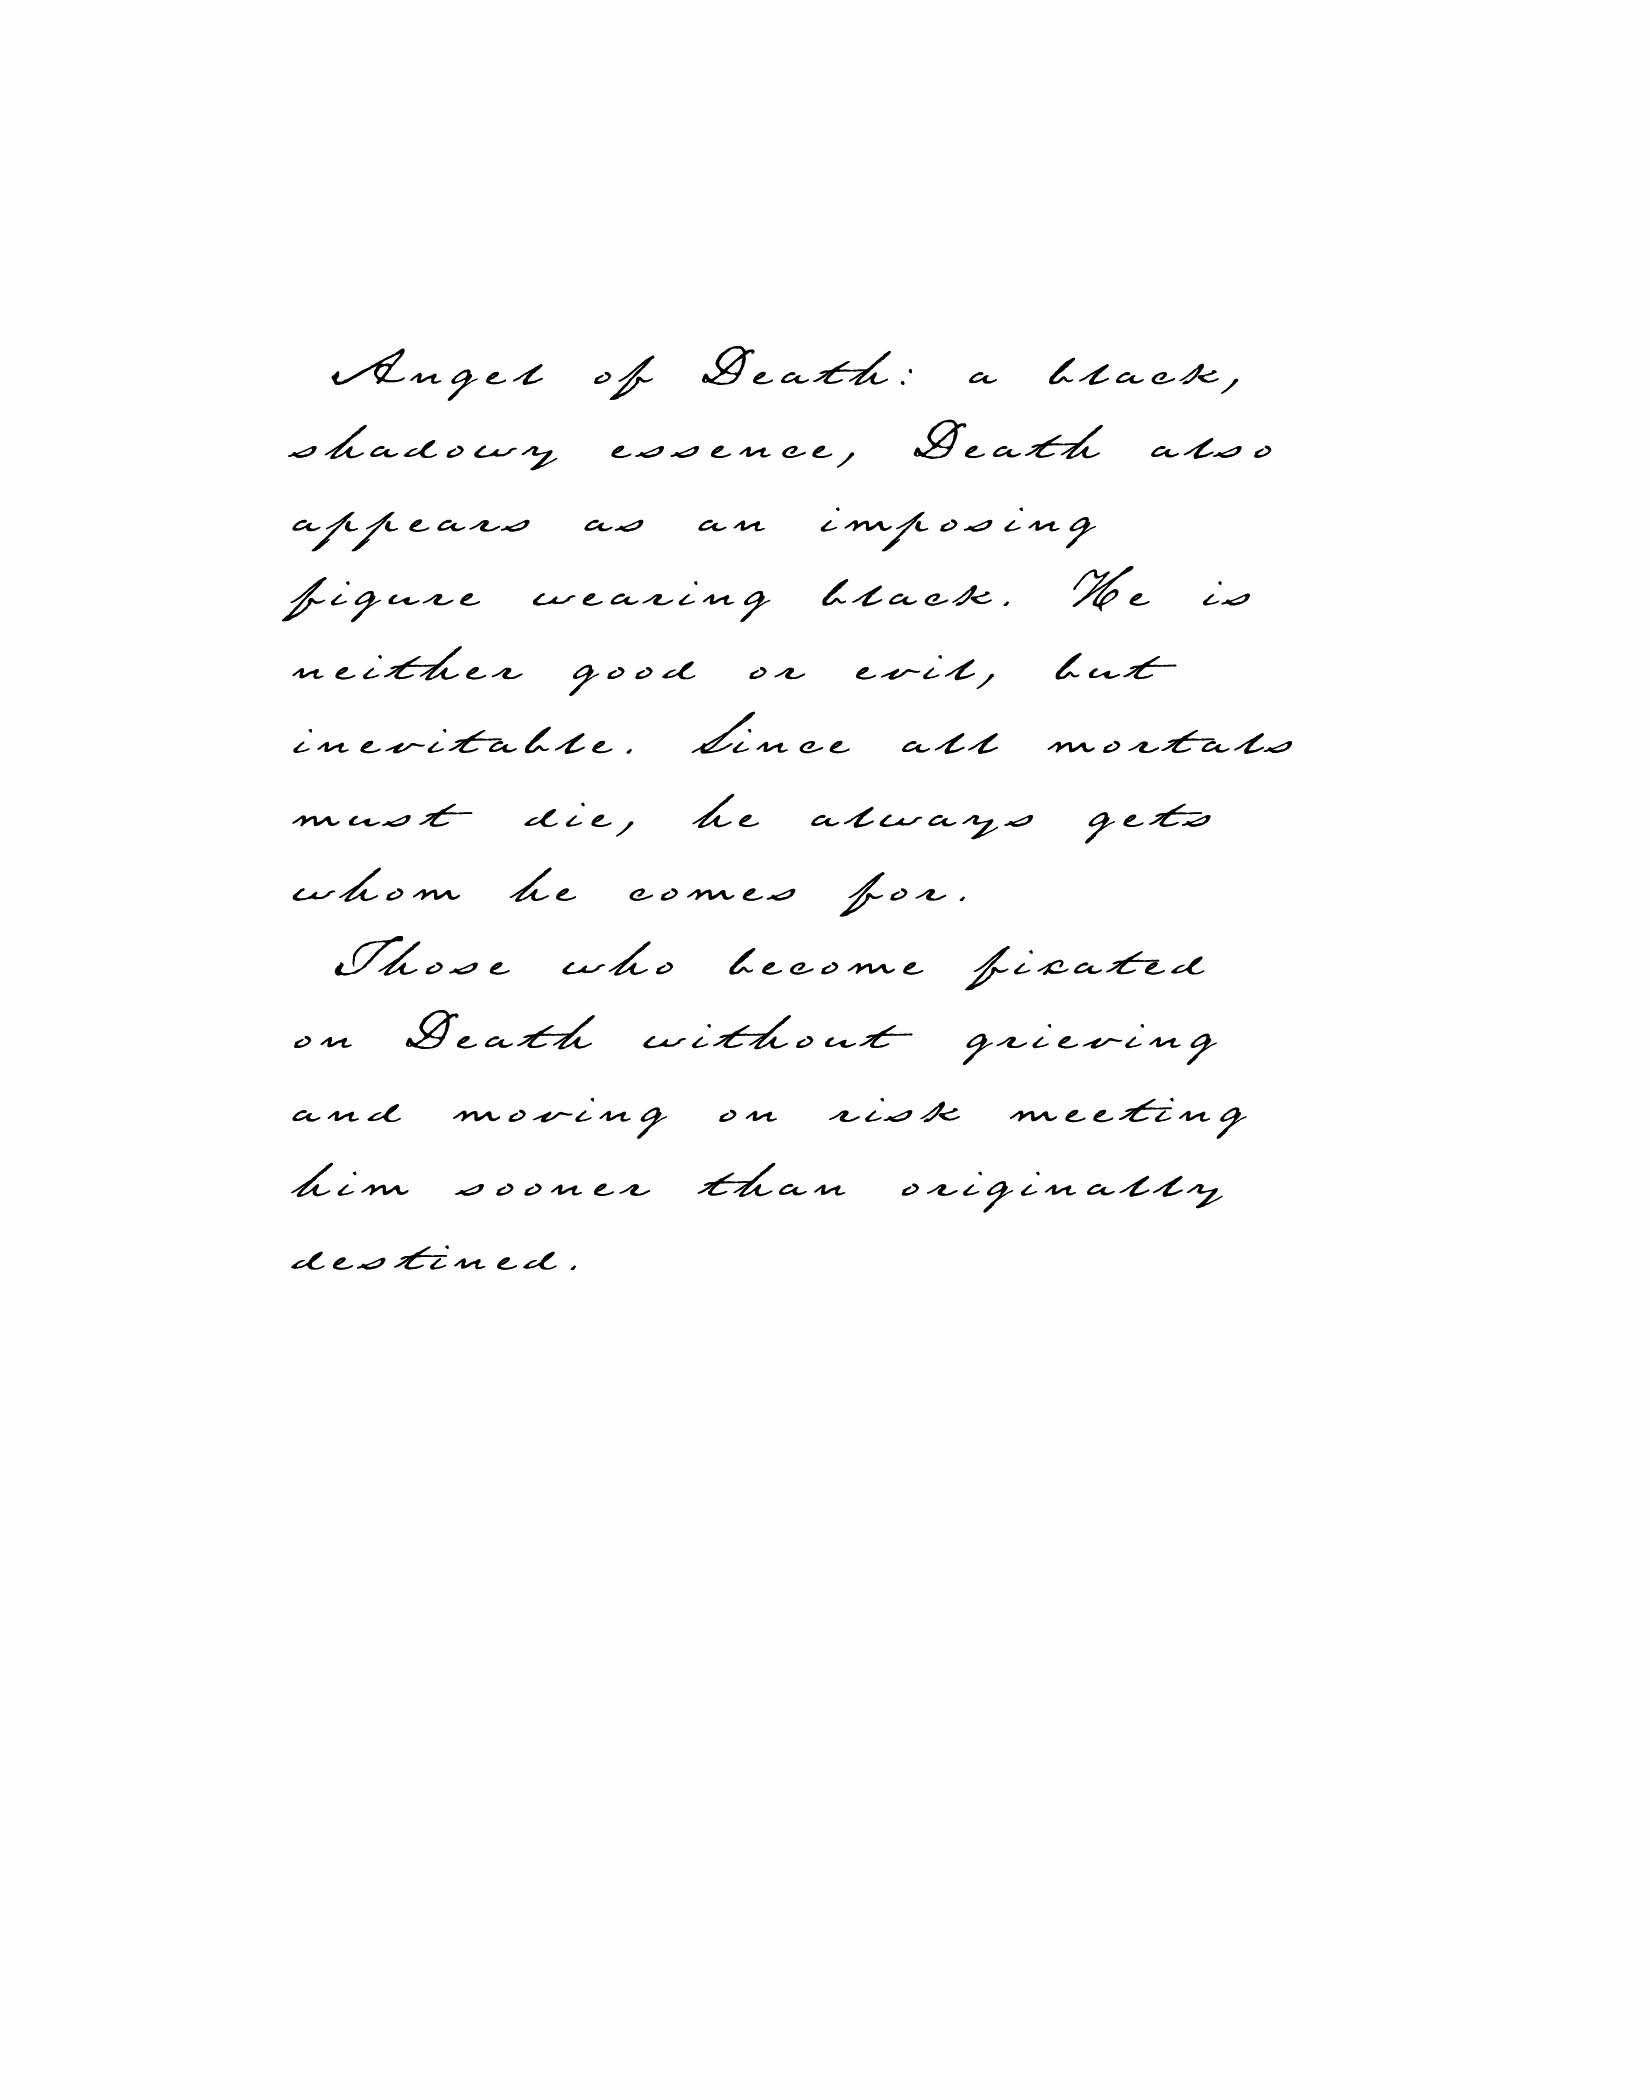 Angel of Death: a black,
shadowy essence, Death also
appears as an imposing
figure wearing black. He is
neither good or evil, but
inevitable. Since all mortals
must die, he always gets
whom he comes for.
Those who become fixated
on Death without grieving
and moving on risk meeting
him sooner than originally
destined.